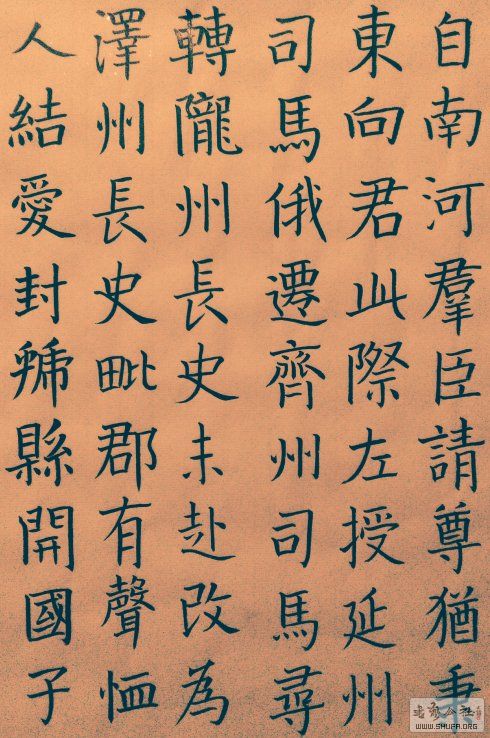 自南河羣臣請尊猶秉
東向君此際左授延州
司馬俄遷齊州司馬尋
轉隴州長史未赴改為
澤州長史毗郡有聲恤
人結愛封縣開國子
WWW.SHUFA.ORG